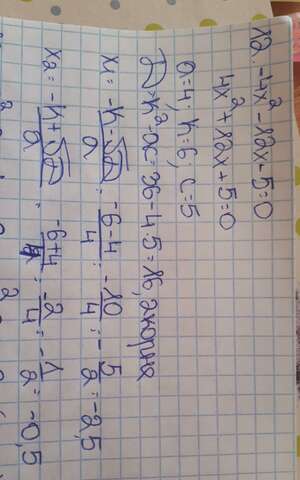 12. -4x² - 12x - 5 = 0
4x² + 12x + 5 = 0
a = 4, k = 6, c = 5
D = k² - ac = 36 - 4 · 5 = 16, 2 корня
x₁ = (-k - √D)/a = (-6 - 4)/4 = -10/4 = -5/2 = -2,5
x₂ = (-k + √D)/a = (-6 + 4)/4 = -2/4 = -1/2 = -0,5